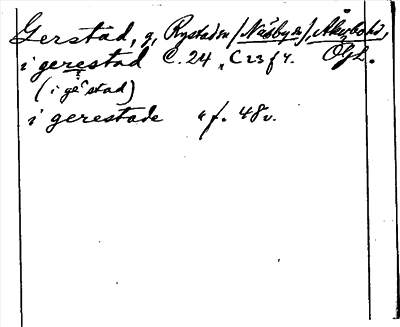 Gerstad, g, Rystad sn (Näsby sn), Åkerbo hd,
i gerestad C. 24 „ C 23 f 4. Ögl.
(i ge stad)
i gerestade " f. 48 v.